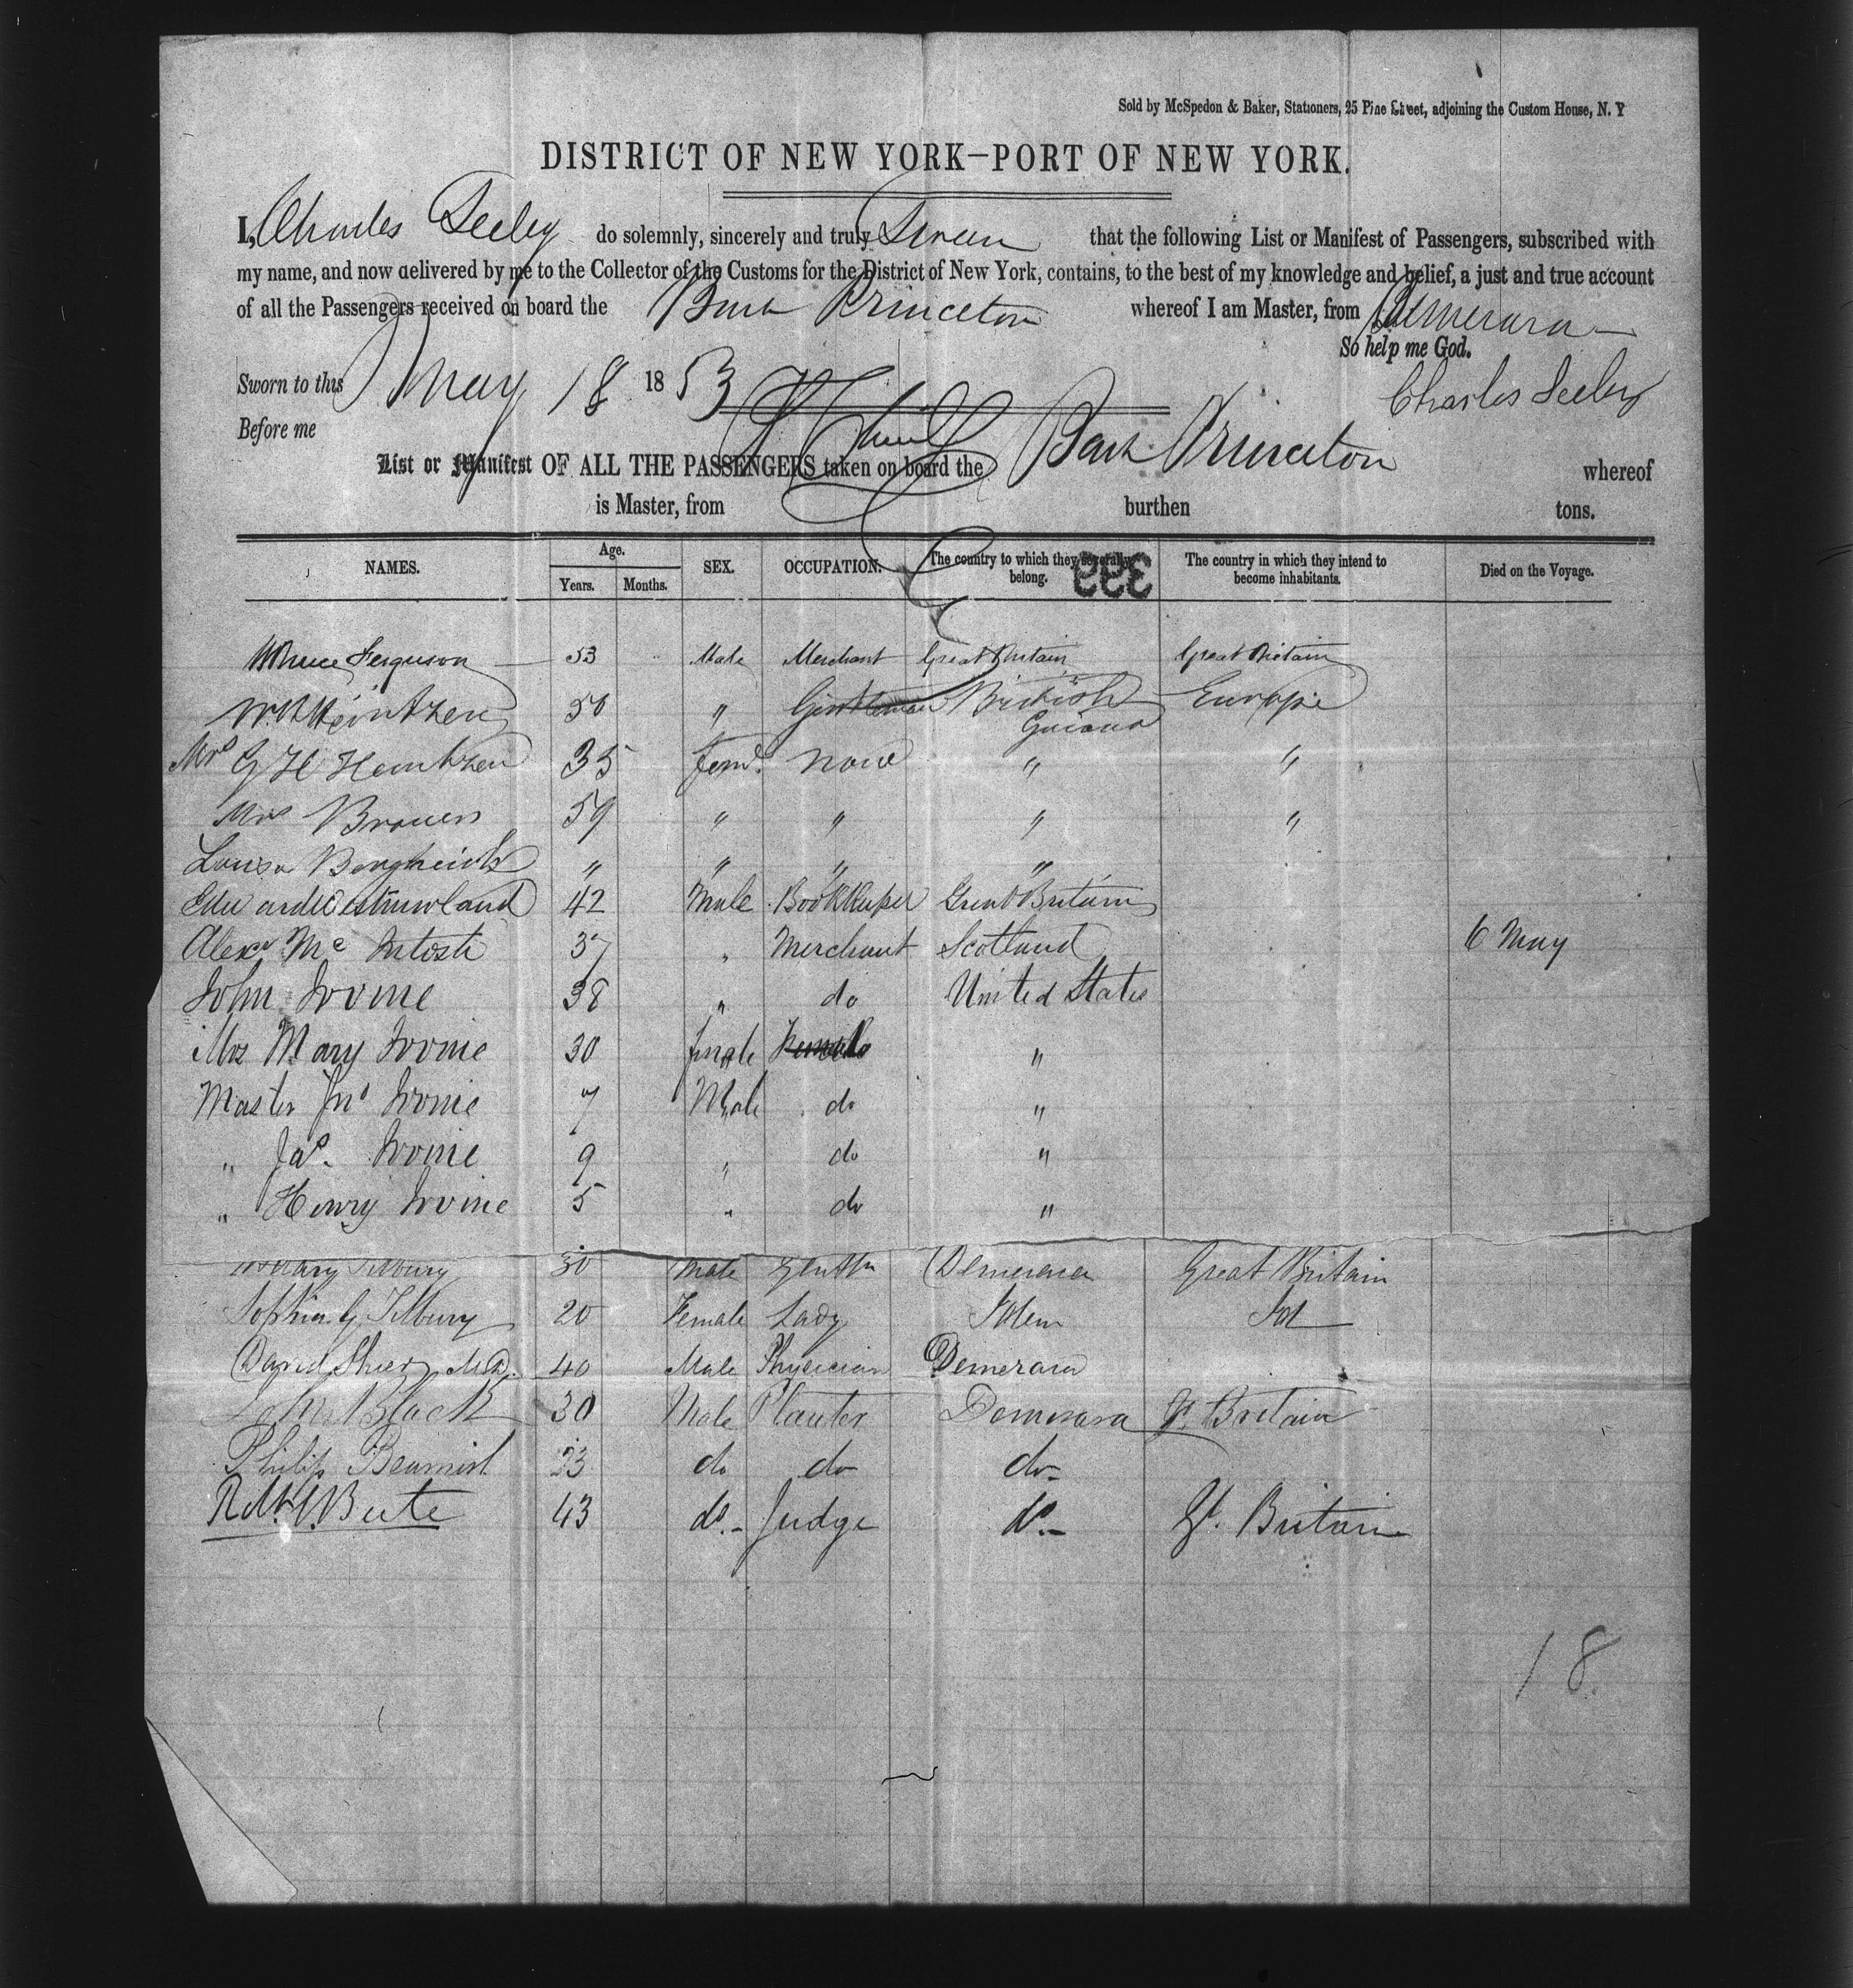 Sold by McSpedon & Baker, Stationers, 25 Pine Street, adjoining the Custom House, N. Y
DISTRICT OF NEW YORK—PORT OF NEW YORK.
I, Charles Seeley do solemnly, sincerely and truly Swear that the following List or Manifest of Passengers, subscribed with
my name, and now delivered by me to the Collector of the Customs for the District of New York, contains, to the best of my knowledge and belief, a just and true account
of all the Passengers received on board the Bark Princeton whereof I am Master, from Demerara
So help me God.
Sworn to this May 18 1853 Charles Seeley
Before me
List or Manifest OF ALL THE PASSENGERS taken on board the Bark Princeton whereof
is Master, from burthen tons.
NAMES. Age. Years. Months. SEX. OCCUPATION. The country to which they severally belong. The country in which they intend to become inhabitants. Died on the Voyage.
333
Ferguson 53 Male Merchant Great Britain Great Britain
50 " Gentleman British Guiana Europe
Mrs G H Heintzen 35 Fem. none " "
Mrs Brouers 59 " " " "
Louisa " " " "
42 Male Bookkeeper Great Britain
Alexr Mc Intosh 37 " Merchant Scotland 6 May
John Irvine 38 " do United States
Mrs Mary Irvine 30 female Female "
Master Jno Irvine 7 Male do "
" Jas. Irvine 9 " do "
" Henry Irvine 5 " do "
Tilbury 30 Male Gentln Demerara Great Britain
Sophia G Tilbury 20 Female Lady Idem Id
David Shier M.D. 40 Male Physician Demerara
John Black 30 Male Planter Demerara Gt. Britain
Philip Beamish 23 do do do
43 do. Judge do. Gt. Britain
18